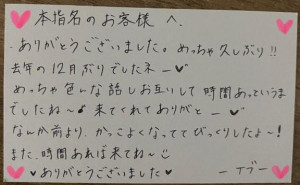 本指名のお客様へ
ありがとうございました。めっちゃ久しぶり!!
去年の12月ぶりでしたネー♥
めっちゃ色んな話しお互いして時間あっというま
でしたね〜♪ 来てくれてありがとー♥
なんか前より、かっこよくなっててびっくりしたよ〜!
また、時間あれば来てね〜
♥ありがとうございました♥